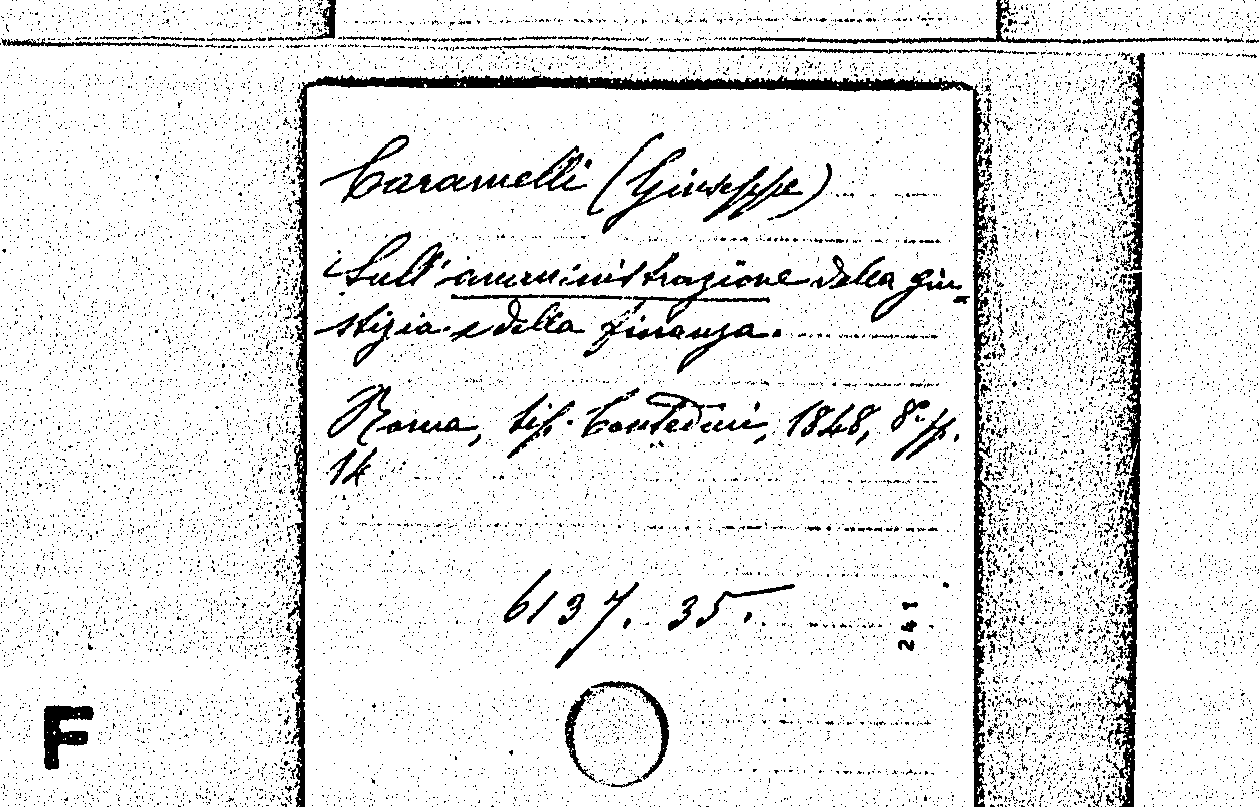 Caramelli (Giuseppe)
Sull'amministrazione della giu=
stizia e della finanza.
Roma, tip. Contedini, 1848, 8° pp.
14
6137. 35.
241
F